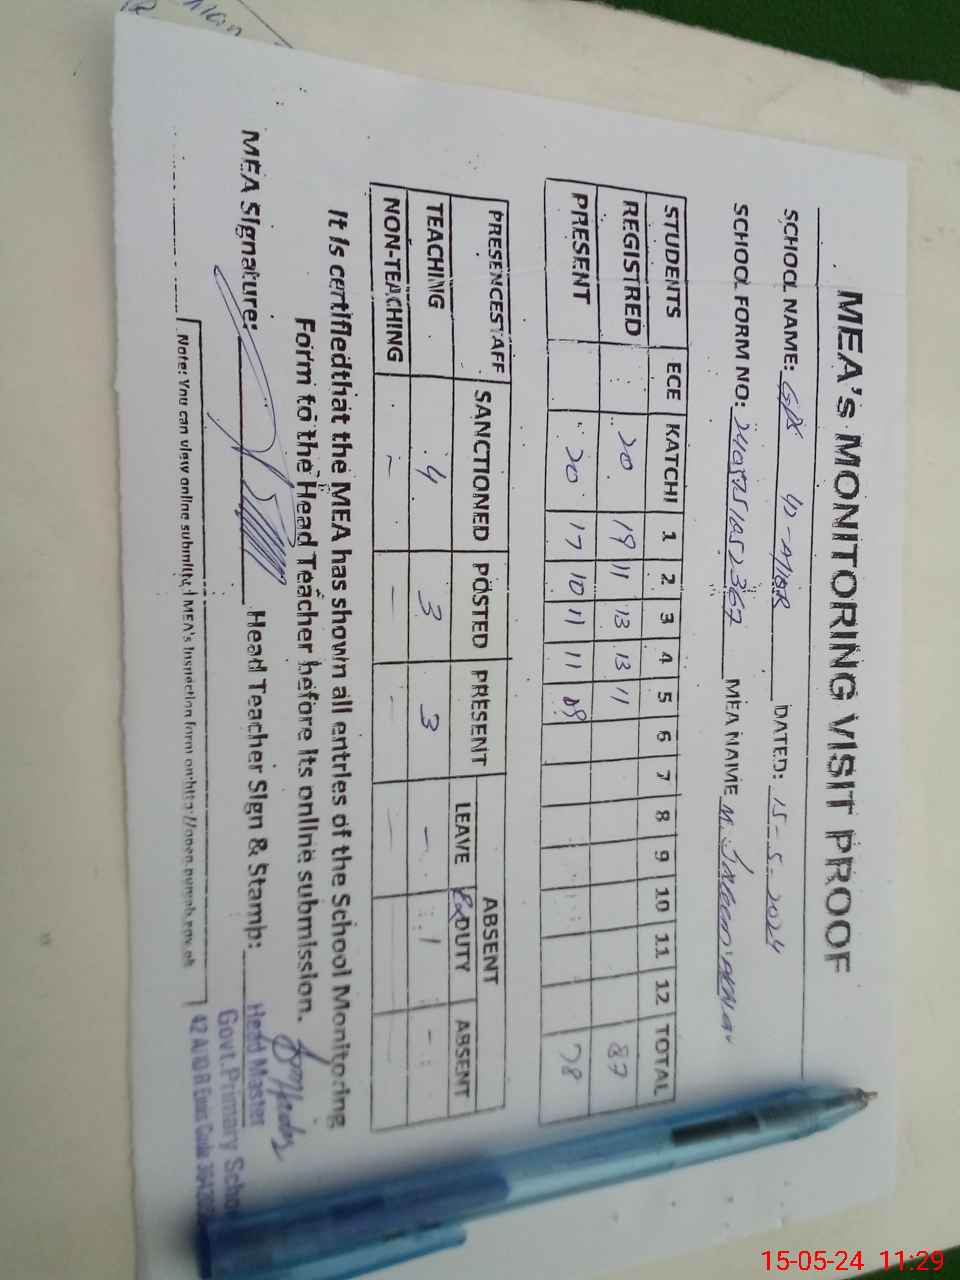 MEA's MONITORING VISIT PROOF
SCHOOL NAME: GPS 42-A/10R DATED: 15-5-2024
SCHOOL FORM NO: MEA NAME M.
STUDENTS ECE KATCHI 1 2 3 4 5 6 7 8 9 10 11 12 TOTAL
REGISTRED 20 19 11 13 13 11 87
PRESENT 20 17 10 11 11 09 78
PRESENCESTAFF SANCTIONED POSTED PRESENT ABSENT
LEAVE DUTY ABSENT
TEACHING 4 3 3 - 1 -
NON-TEACHING - - - - -
It is certifiedthat the MEA has shown all entries of the School Monitoring
Form to the Head Teacher before its online submission.
MEA Signature: Head Teacher Sign & Stamp:
Head Master
Govt. Primary School
42 A/10 R Emis Code
Note: You can view online submitted MEA's inspection form on:http://open.punjab.gov.pk
15-05-24 11:29